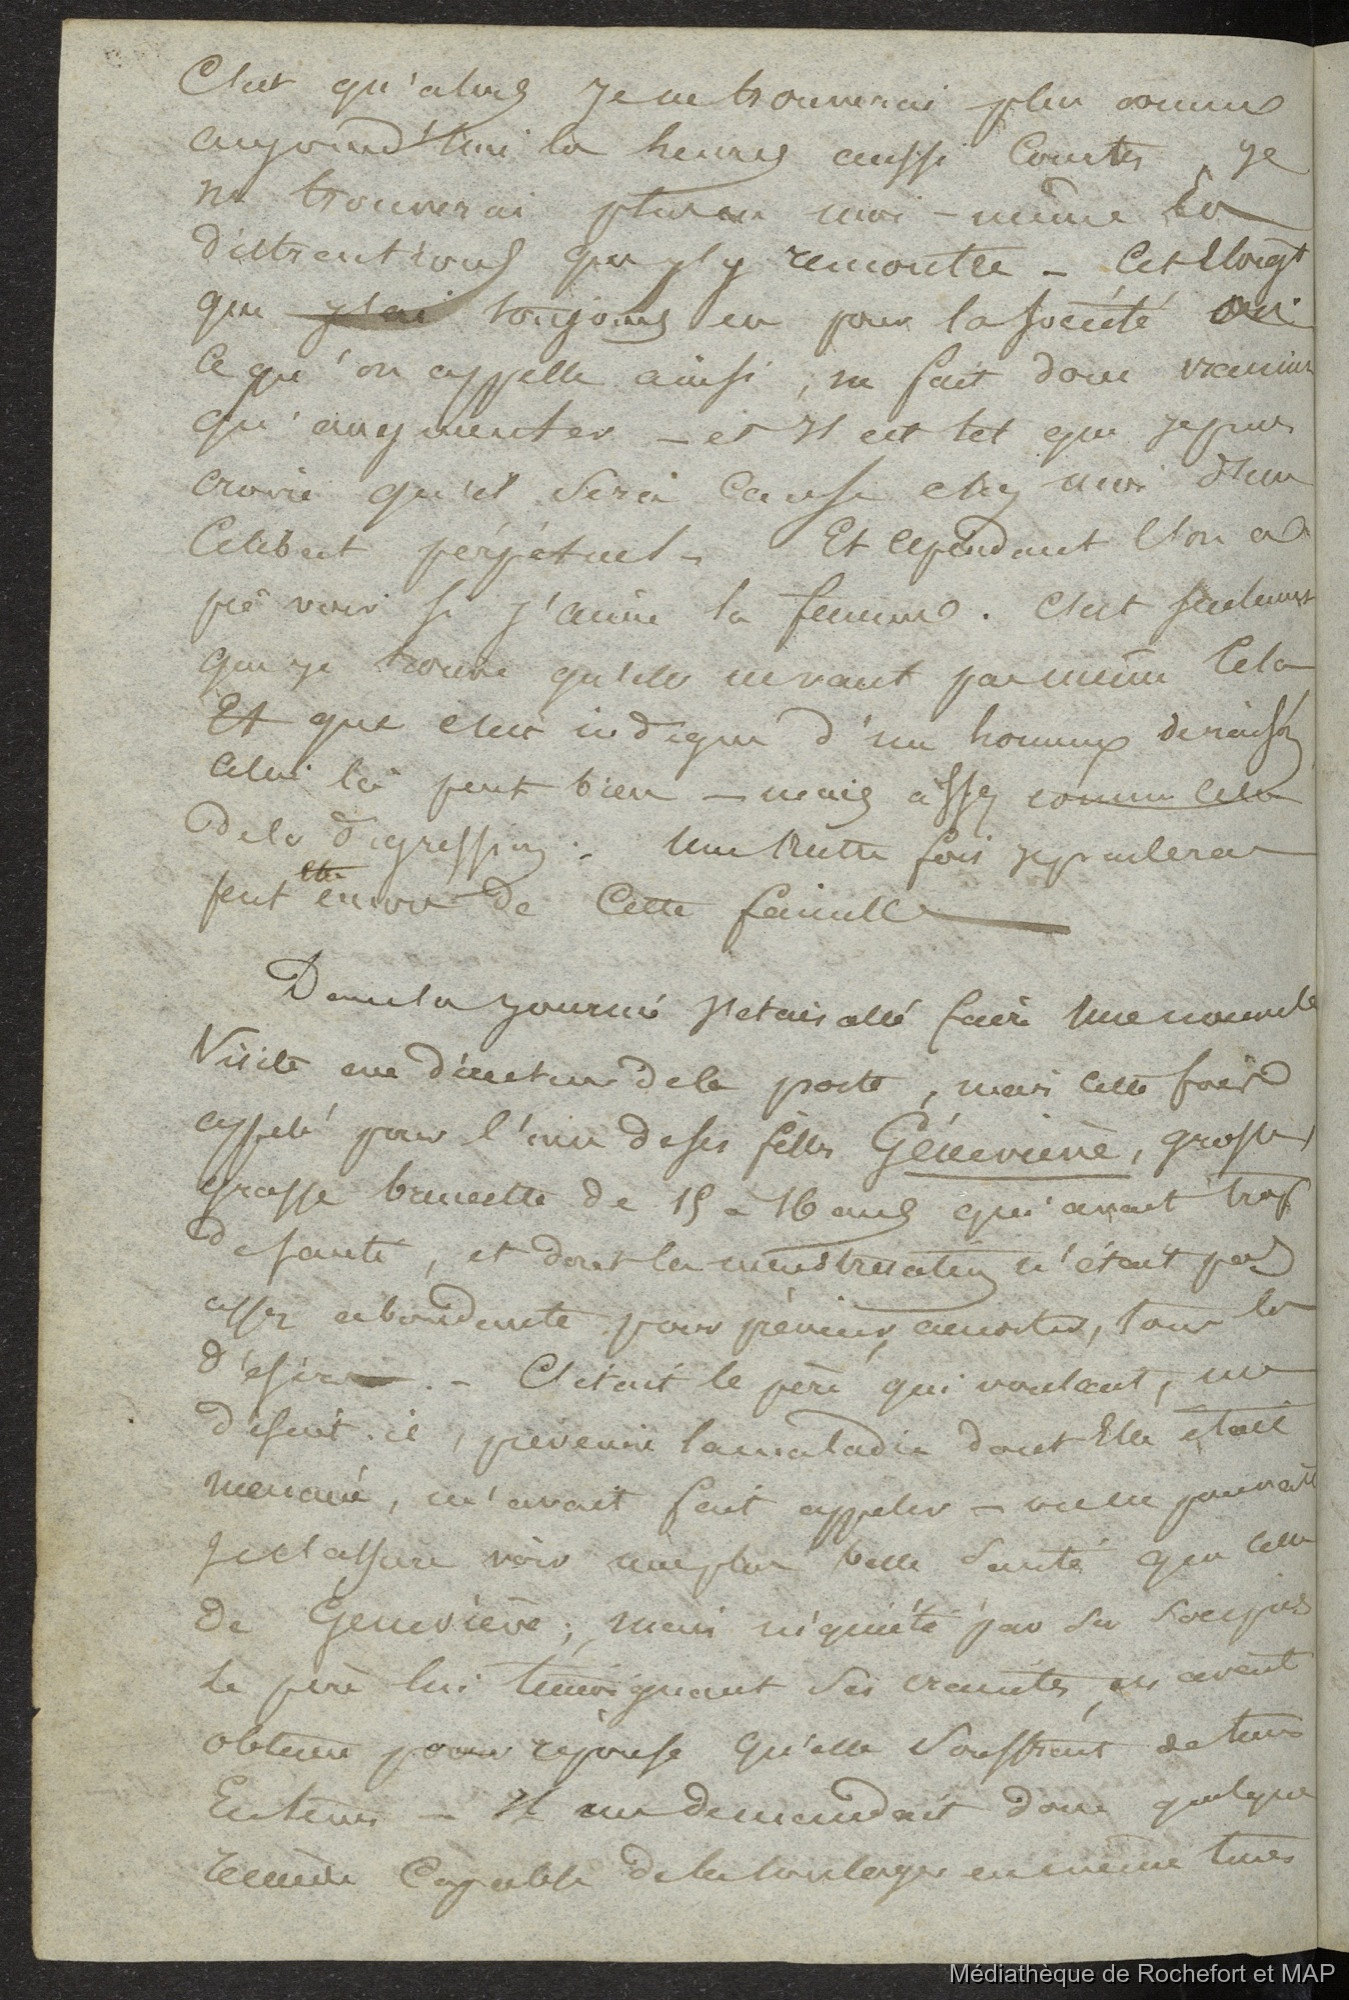 C'est qu'alors je ne trouverai plus comme
aujourd'hui les heures aussi courtes, je
ne trouverai plus en moi-même les
distractions que j'y rencontre _ Cet éloigt
que j'ai toujours eu pour la société ou
ce qu'on appelle ainsi, ne fait donc vraiment
qu'augmenter _ et il est tel que je puis
croire qu'il sera cause chez moi d'un
célibat perpétuel _ Et cependant l'on a
pû voir si j'aime la femme. C'est seulement
que je trouve qu'elle ne vaut pas même cela
Et que c'est indigne d'un homme de
celui là peut bien _ mais assez comme cela
de la digression. Une autre fois je parlerai
peut être encore de cette famille

Dans la journée j'étais allé faire une nouvelle
visite au directeur de la poste, mais cette fois
appelé pour l'une de ses filles Géneviève, grosse,
grasse brunette de 15 à 16 ans qui avait trop
de santé, et dont la menstruation n'était pas
assez abondante pour tous les
désirs. _ C'était le père qui voulant, me
disait-il, prévenir la maladie dont Elle était
menacée, m'avait fait appeler _ on ne pouvait
je t'assure voir une plus belle santé que celle
de Geneviève; mais inquiété par ses soupirs
le père lui témoignant ses craintes, en avait
obtenu pour réponse qu'elle souffrait de tems
En tems _ Il me demandait donc quelque
remède capable de la soulager en même tems
Médiathèque de Rochefort et MAP